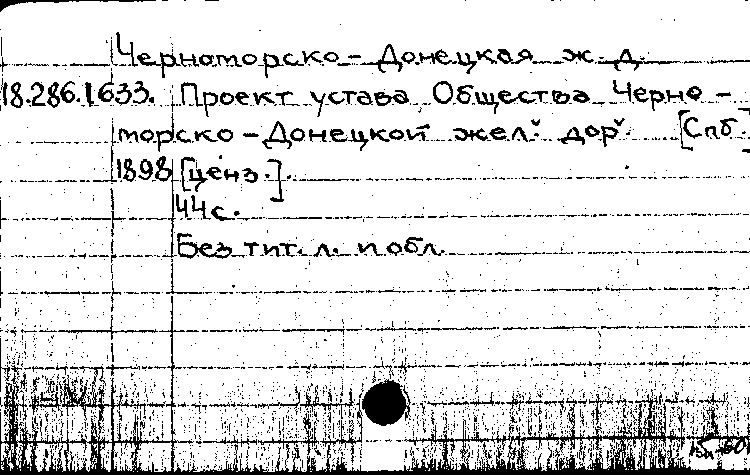 Черноморско-Донецкая ж. д.
18.286.1.633. Проект устава Общества Черно-
морско-Донецкой жел. дор. [Спб.]
1898 [ценз.].
44 с.
Без тит. л. и обл.